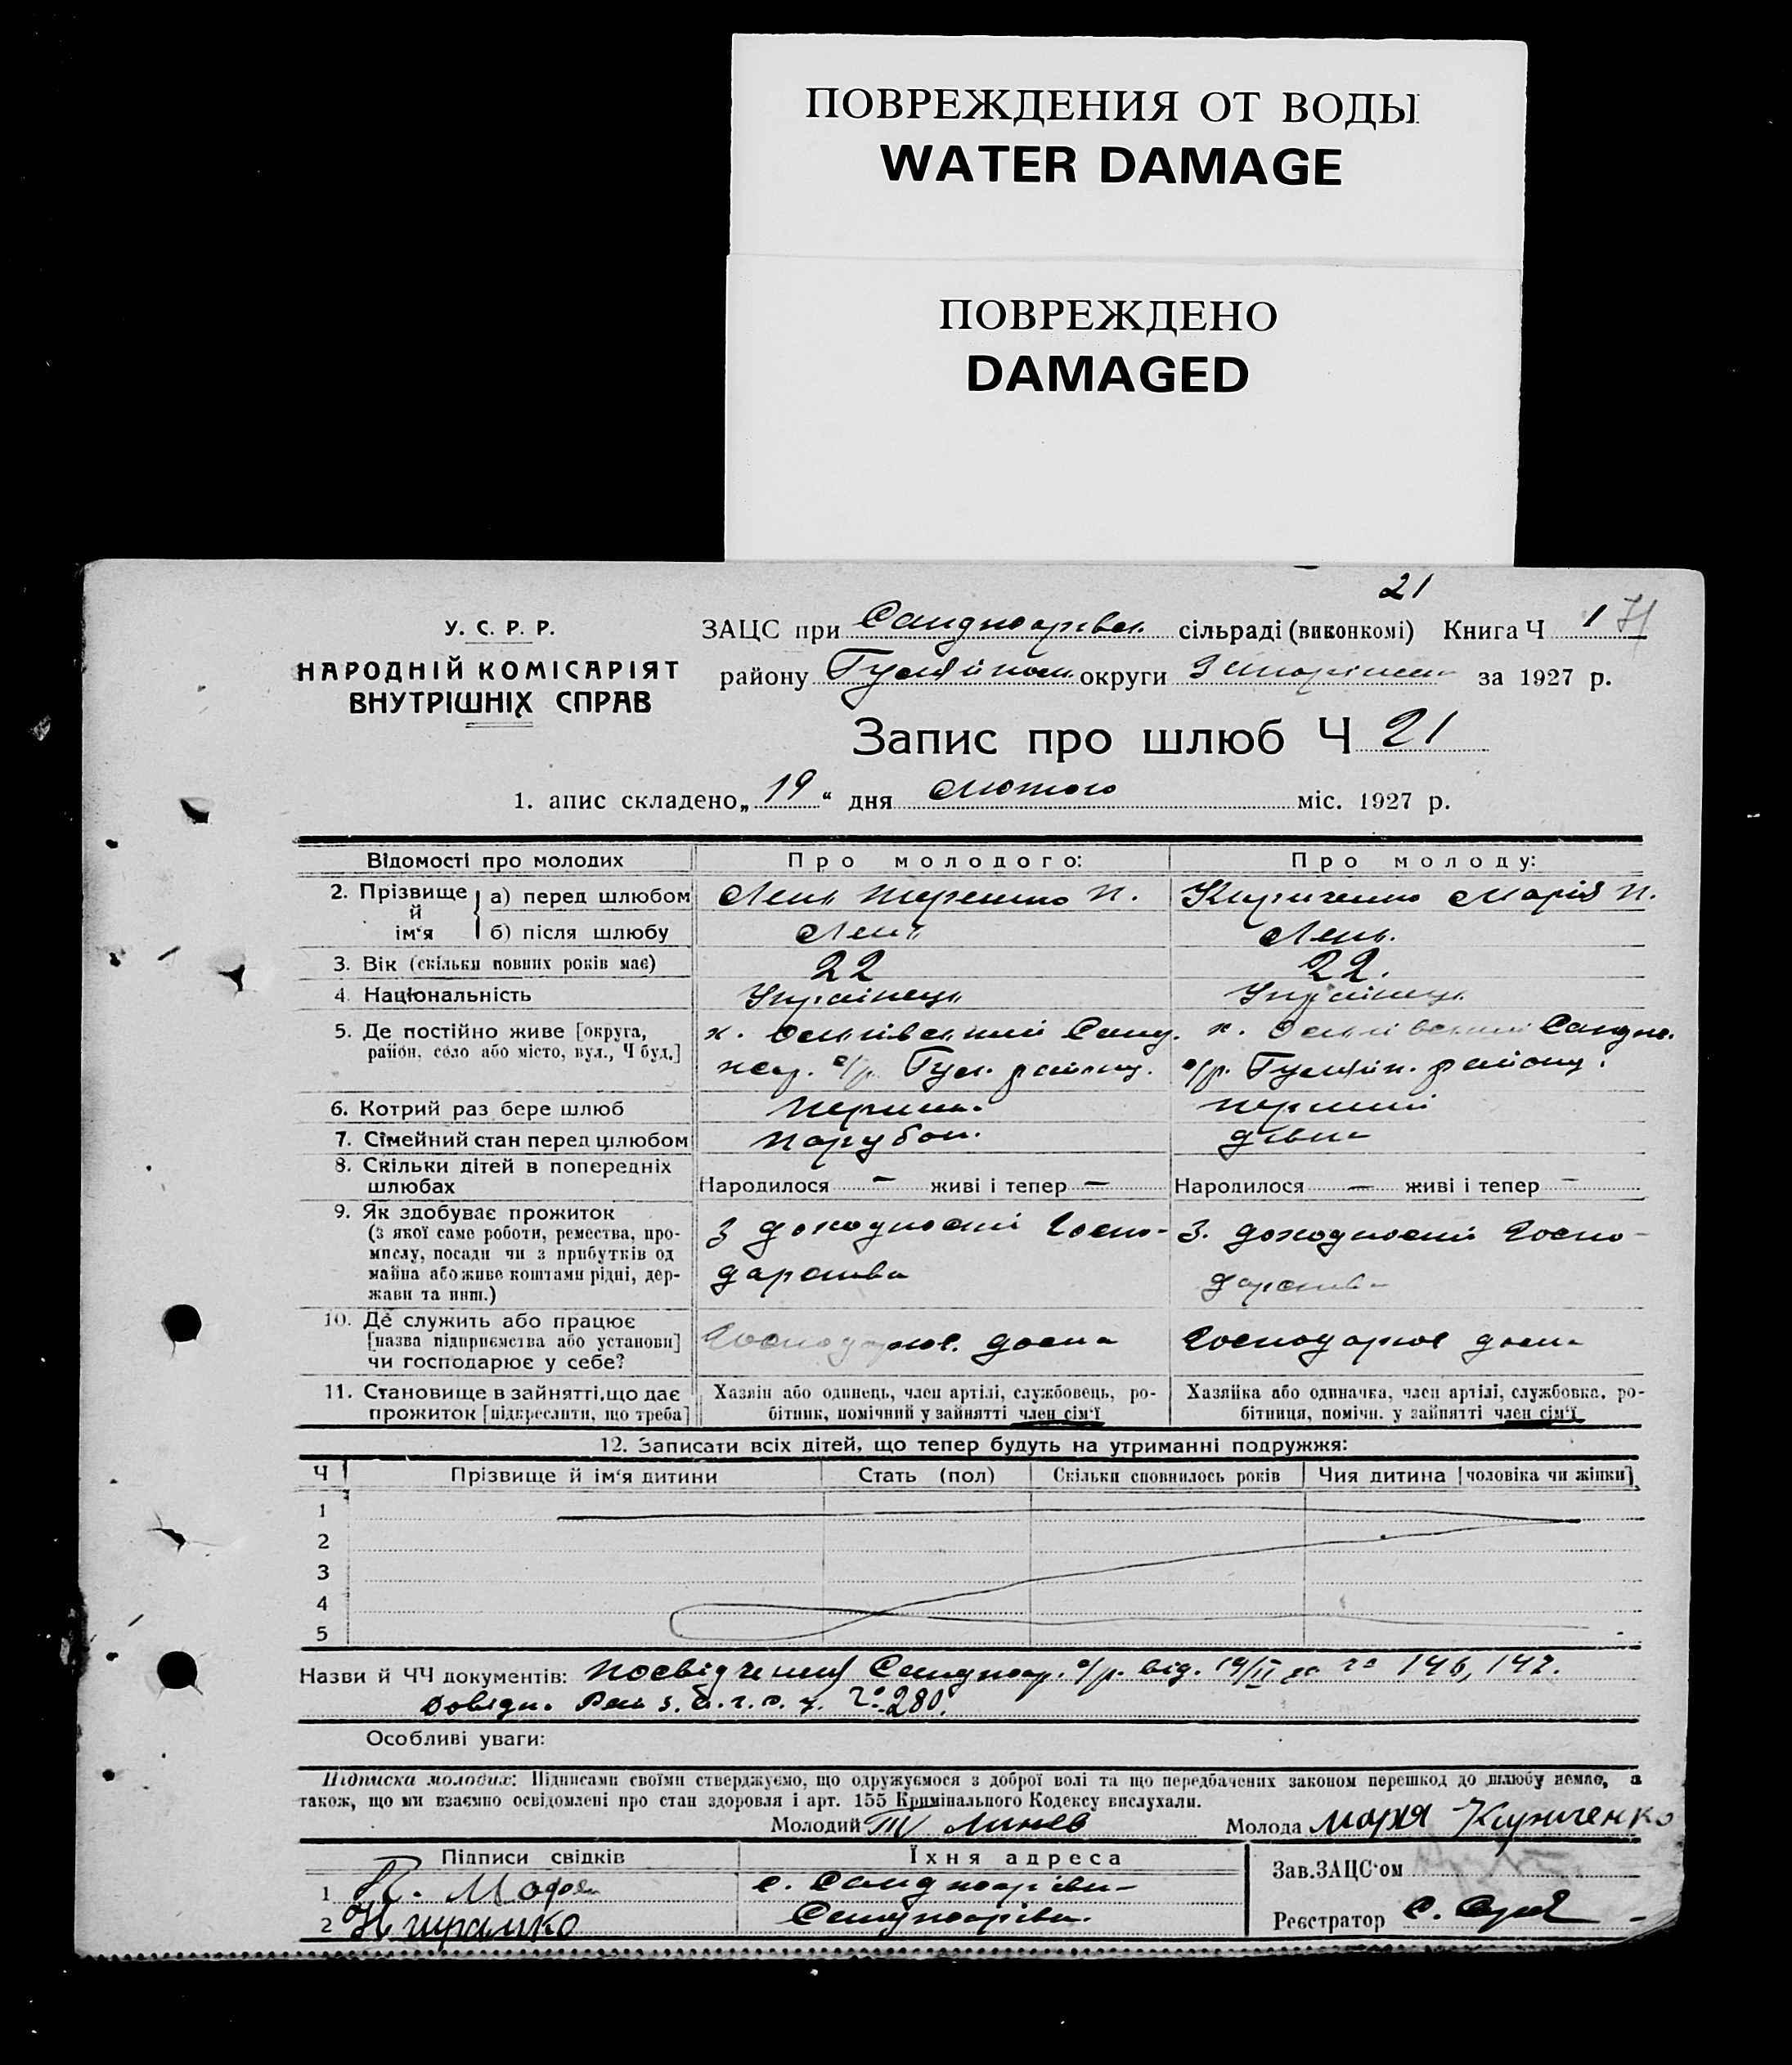 ПОВРЕЖДЕНИЯ ОТ ВОДЫ
WATER DAMAGE
ПОВРЕЖДЕНО
DAMAGED
21
У. С. Р. Р.
НАРОДНІЙ КОМІСАРІЯТ
ВНУТРІШНІХ СПРАВ
ЗАЦС при сільраді (виконкомі) Книга Ч 1
району округи за 1927 р.
Запис про шлюб Ч 21
1. апис складено „ 19 “ дня лютого міс. 1927 р.
Відомості про молодих Про молодого: Про молоду:
2. Прізвище й ім‘я а) перед шлюбом Лень Терешко П. Кириченко Марія П.
б) після шлюбу Лень Лень.
3. Вік (скільки повних років має) 22 22.
4. Національність Українець Українець
5. Де постійно живе [округа, х. х.
район, село або місто, вул., Ч буд.] с/р. Гул. району. с/р. Гуляйп. району.
6. Котрий раз бере шлюб перший
7. Сімейний стан перед шлюбом Парубок. дівка
8. Скільки дітей в попередніх
шлюбах Народилося — живі і тепер — Народилося — живі і тепер —
9. Як здобуває прожиток
(з якої саме роботи, ремества, про-
мислу, посади чи з прибутків од
майна або живе коштами рідні, дер-
жави та инш.)
З доходности госпо-
дарства
З. доходности госпо-
дарства
10. Де служить або працює
[назва підприємства або установи]
чи господарює у себе?
Господарює дома
Господарює дома
11. Становище в зайнятті, що дає
прожиток [підкреслити, що треба]
Хазяїн або одинець, член артілі, службовець, ро-
бітник, помічний у зайнятті член сім‘ї
Хазяйка або одиначка, член артілі, службовка, ро-
бітниця, помічн. у зайнятті член сім‘ї
12. Записати всіх дітей, що тепер будуть на утриманні подружжя:
Ч Прізвище й ім‘я дитини Стать (пол) Скільки сповнилось років Чия дитина [чоловіка чи жінки]
1
2
3
4
5
Назви й ЧЧ документів: Посвідчення с/р. від. 146, 147.
Довідк. 280.
Особливі уваги:
Підписка молодих: Підписами своїми стверджуємо, що одружуємося з доброї волі та що передбачених законом перешкод до шлюбу немає, а
також, що ми взаємно освідомлені про стан здоровля і арт. 155 Кримінального Кодексу вислухали.
Молодий Молода Марія Кириченко
Підписи свідків Їхня адреса
1 с.
2
Зав. ЗАЦС‘ом
Реєстратор С.